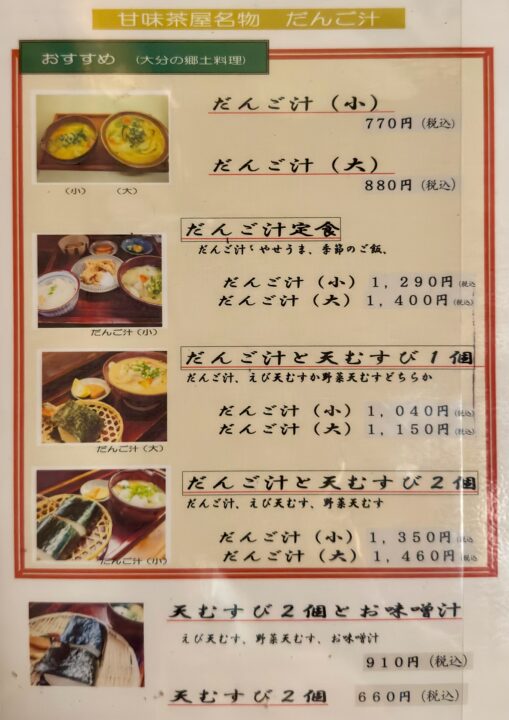 甘味茶屋名物　だんご汁
おすすめ　（大分の郷土料理）
だんご汁（小）
770円（税込）
だんご汁（大）
880円（税込）
（小）　（大）
だんご汁定食
だんご汁、やせうま、季節のご飯、
だんご汁（小）　1，290円（税込
だんご汁（大）　1，400円（税込
だんご汁（小）
だんご汁と天むすび1個
だんご汁、えび天むすか野菜天むすどちらか
だんご汁（小）　1，040円（税込）
だんご汁（大）　1，150円（税込）
だんご汁（大）
だんご汁と天むすび2個
だんご汁、えび天むす、野菜天むす
だんご汁（小）　1，350円（税込
だんご汁（大）　1，460円（税込
だんご汁（小）
天むすび2個とお味噌汁
えび天むす、野菜天むす、お味噌汁
910円（税込）
天むすび2個　660円（税込）